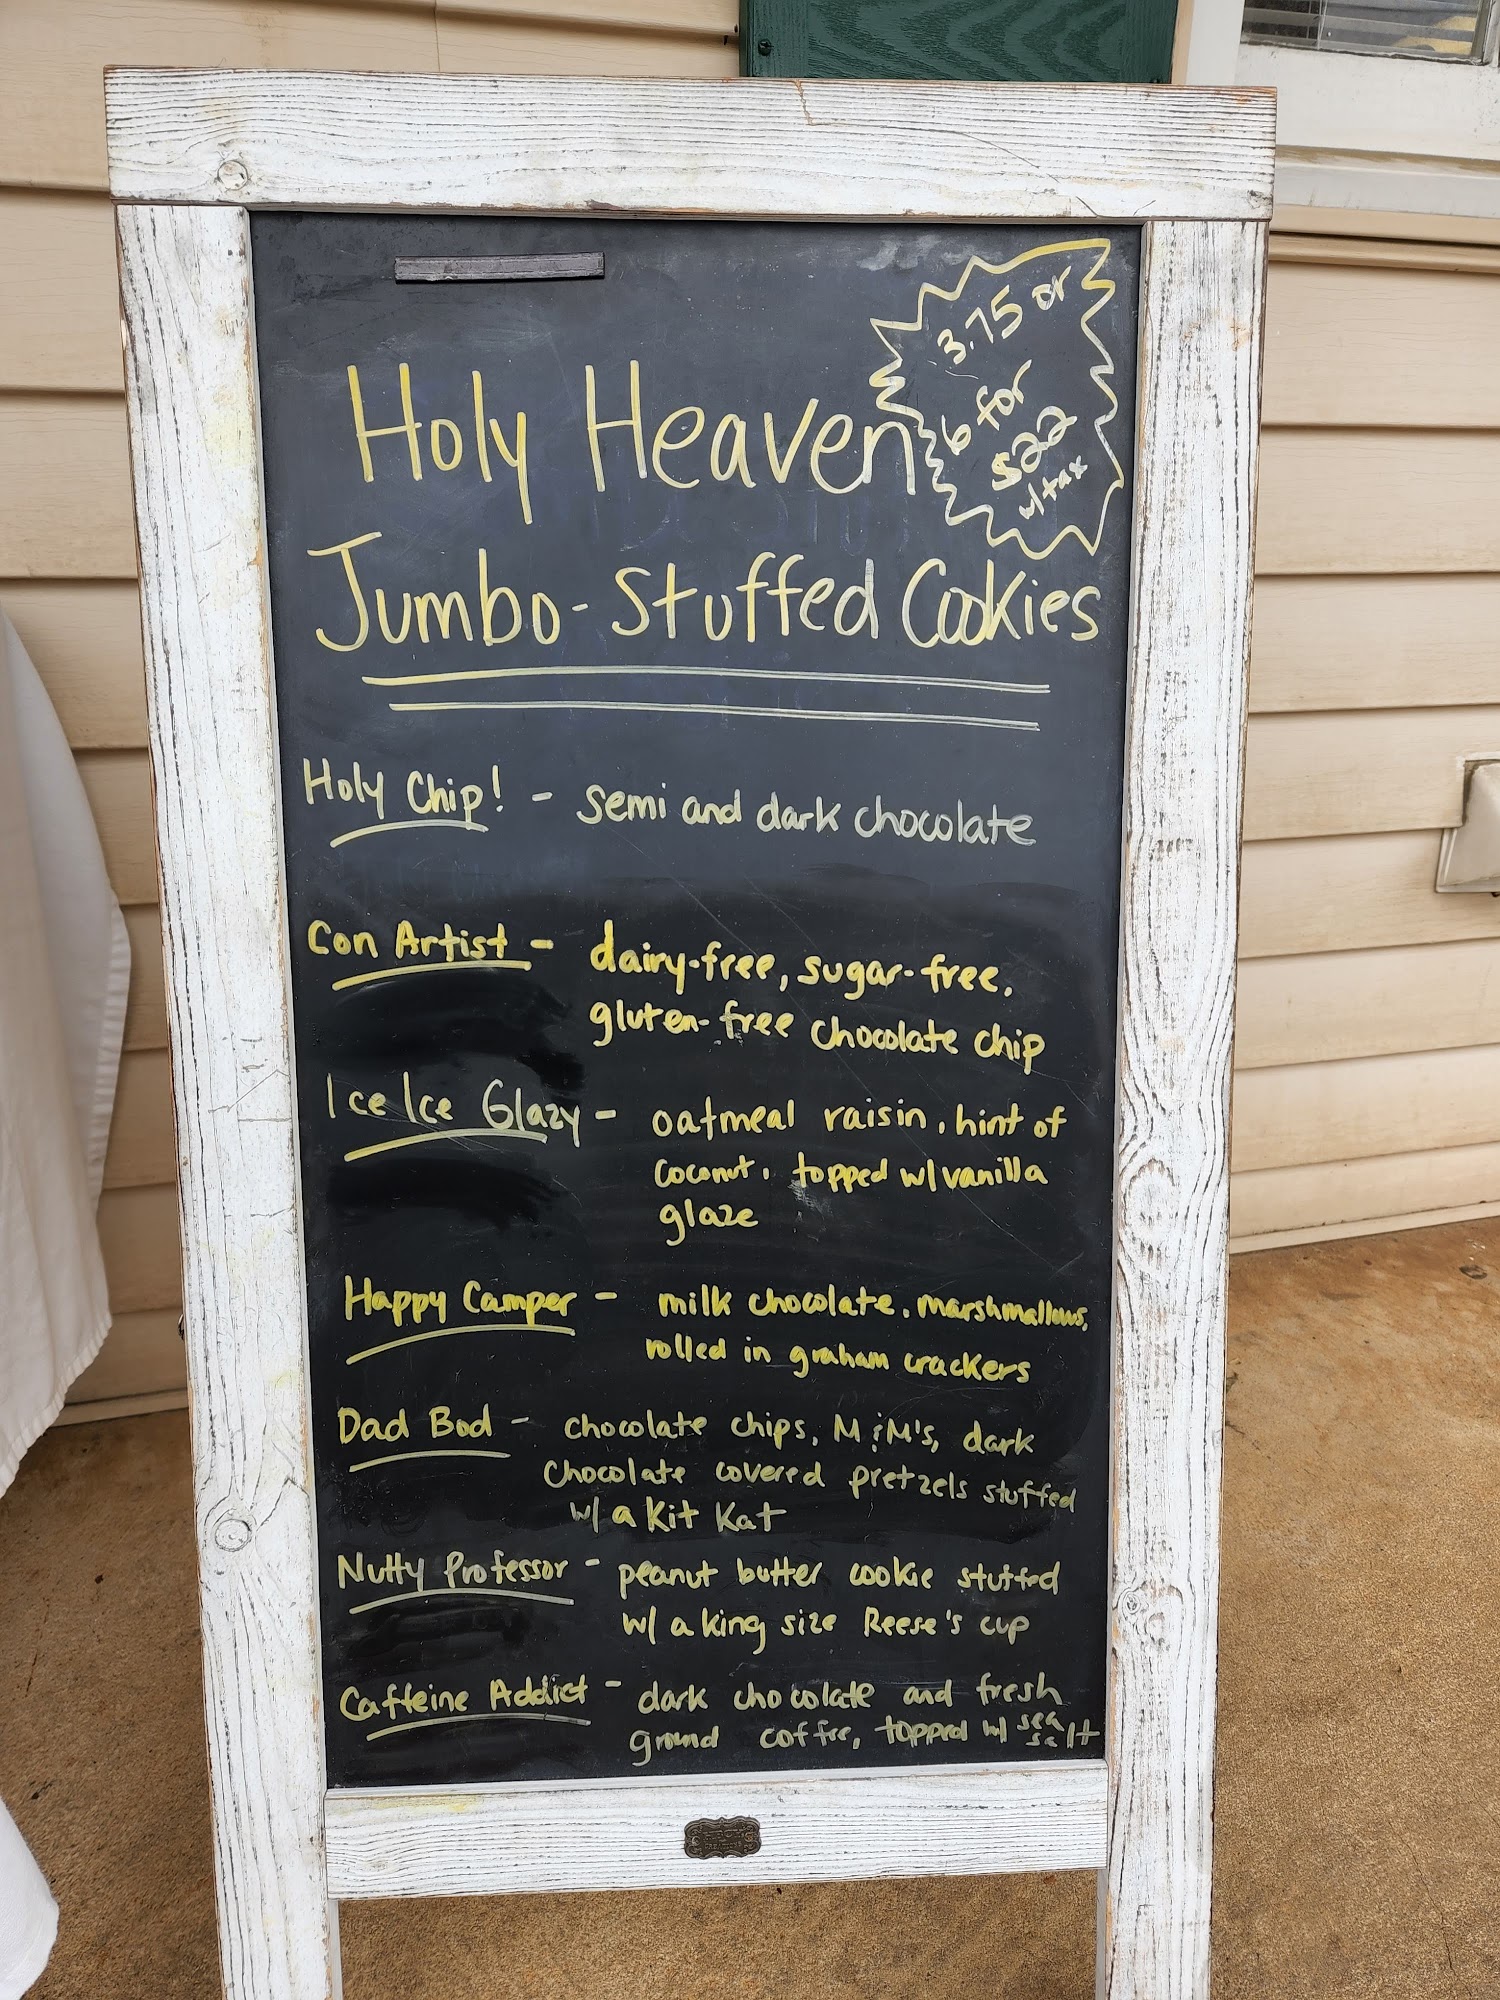 3.75 or
6 for
$22
w/ tax
Holy Heaven
Jumbo-Stuffed Cookies
Holy Chip! - semi and dark chocolate
Con Artist - dairy-free, sugar-free,
gluten-free chocolate chip
Ice Ice Glazy - oatmeal raisin, hint of
coconut, topped w/ vanilla
glaze
Happy Camper - milk chocolate, marshmallows,
rolled in graham crackers
Dad Bod - chocolate chips, M&M's, dark
chocolate covered pretzels stuffed
w/ a Kit Kat
Nutty Professor - peanut butter cookie stuffed
w/ a king size Reese's cup
Caffeine Addict - dark chocolate and fresh
ground coffee, topped w/ sea
salt